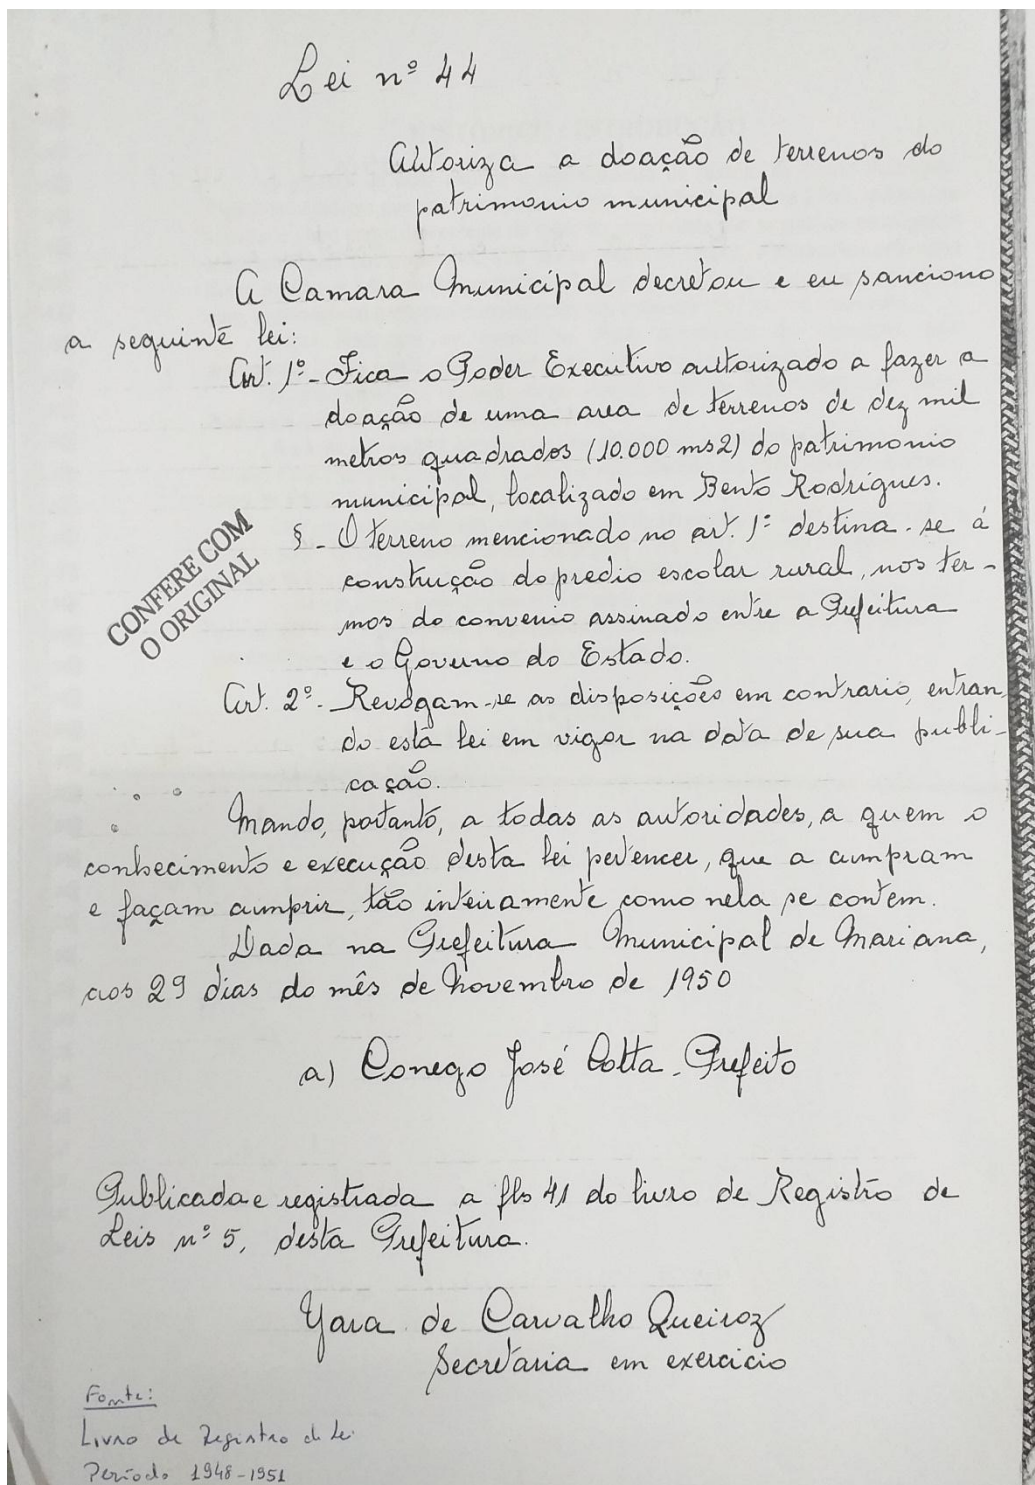 Lei nº 44
Autoriza a doação de terrenos do
patrimonio municipal
A Camara Municipal decretou e eu sanciono
a seguinte lei:
Art. 1º - Fica o Poder Executivo autorizado a fazer a
doação de uma area de terrenos de dez mil
metros quadrados (10.000 ms2) do patrimonio
municipal, localizado em Bento Rodrigues.
§ - O terreno mencionado no art. 1º destina-se á
construção do predio escolar rural, nos ter-
mos do convenio assinado entre a Prefeitura
e o Governo do Estado.
CONFERE COM
O ORIGINAL
Art. 2º - Revogam-se as disposições em contrario, entran-
do esta lei em vigor na data de sua publi-
cação.
Mando, portanto, a todas as autoridades, a quem o
conhecimento e execução desta lei pertencer, que a cumpram
e façam cumprir, tão inteiramente como nela se contem.
Dada na Prefeitura Municipal de Mariana,
aos 29 dias do mês de Novembro de 1950
a) Conego José Cotta - Prefeito
Publicada e registrada a fls 41 do livro de Registro de
Leis nº 5, desta Prefeitura.
Yara de Carvalho Queiroz
Secretaria em exercicio
Fonte:
Livro de Registro de Lei
Período 1948-1951